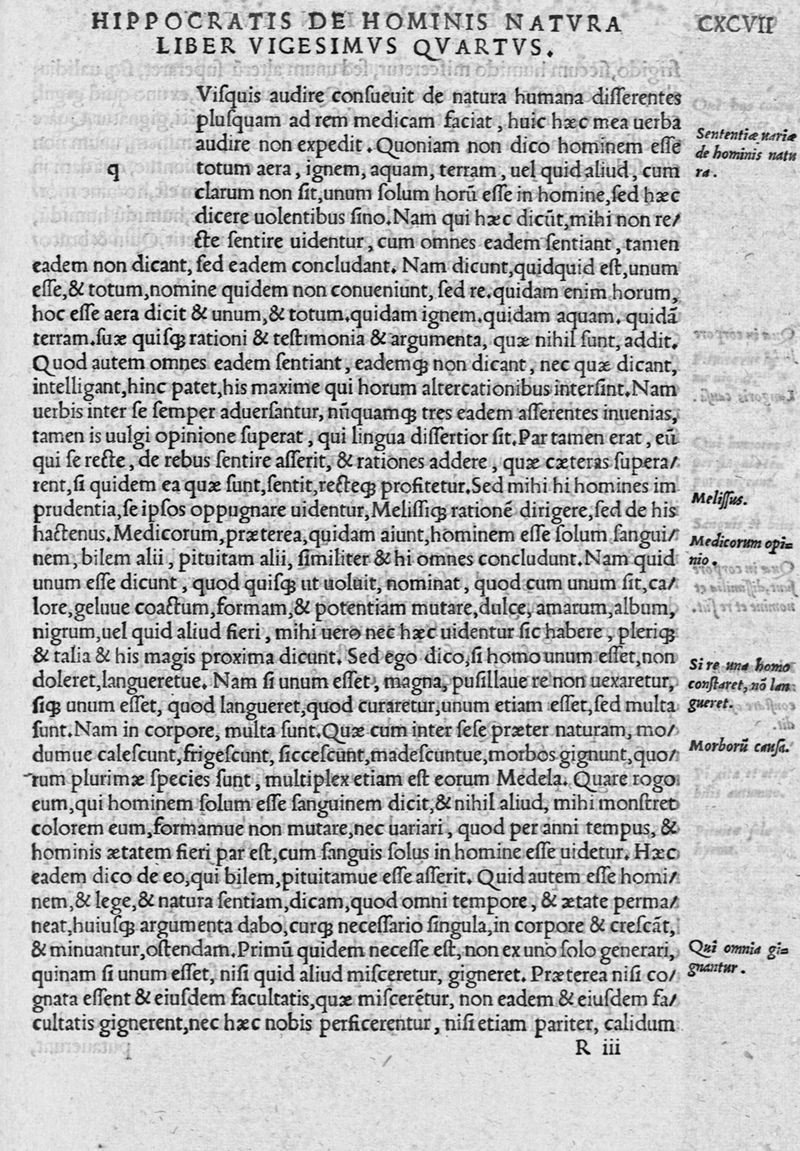 HIPPOCRATIS DE HOMINIS NATVRA
CXCVII
LIBER VIGESIMVS QVARTVS.
q
Viſquis audire conſueuit de natura humana diſſerentes
pluſquam ad rem medicam faciat, huic hæc mea uerba
audire non expedit. Quoniam non dico hominem eſſe
totum aera, ignem, aquam, terram, uel quid aliud, cum
clarum non ſit, unum ſolum horū eſſe in homine, ſed hæc
dicere uolentibus ſino. Nam qui hæc dicūt, mihi non re/
cte ſentire uidentur, cum omnes eadem ſentiant, tamen
eadem non dicant, ſed eadem concludant. Nam dicunt, quidquid eſt, unum
eſſe, & totum, nomine quidem non conueniunt, ſed re. quidam enim horum,
hoc eſſe aera dicit & unum, & totum. quidam ignem. quidam aquam. quidā
terram. ſuæ quiſq; rationi & teſtimonia & argumenta, quæ nihil ſunt, addit.
Quod autem omnes eadem ſentiant, eademq; non dicant, nec quæ dicant,
intelligant, hinc patet, his maxime qui horum altercationibus interſint. Nam
uerbis inter ſe ſemper aduerſantur, nūquamq; tres eadem aſſerentes inuenias,
tamen is uulgi opinione ſuperat, qui lingua diſſertior ſit. Par tamen erat, eū
qui ſe recte, de rebus ſentire aſſerit, & rationes addere, quæ cæteras ſupera/
rent, ſi quidem ea quæ ſunt, ſentit, recteq; profitetur. Sed mihi hi homines im
prudentia, ſe ipſos oppugnare uidentur, Meliſſiq; rationē dirigere, ſed de his
hactenus. Medicorum, præterea, quidam aiunt, hominem eſſe ſolum ſangui/
nem, bilem alii, pituitam alii, ſimiliter & hi omnes concludunt. Nam quid
unum eſſe dicunt, quod quiſq; ut uoluit, nominat, quod cum unum ſit, ca/
lore, geluue coactum, formam, & potentiam mutare, dulce, amarum, album,
nigrum, uel quid aliud fieri, mihi uero nec hæc uidentur ſic habere, pleriq;
& talia & his magis proxima dicunt. Sed ego dico, ſi homo unum eſſet, non
doleret, langueretue. Nam ſi unum eſſet, magna, puſillaue re non uexaretur,
ſiq; unum eſſet, quod langueret, quod curaretur, unum etiam eſſet, ſed multa
ſunt. Nam in corpore, multa ſunt. Quæ cum inter ſeſe præter naturam, mo/
dumue caleſcunt, frigeſcunt, ſicceſcunt, madeſcuntue, morbos gignunt, quo/
rum plurimæ ſpecies ſunt, multiplex etiam eſt eorum Medela. Quare rogo
eum, qui hominem ſolum eſſe ſanguinem dicit, & nihil aliud, mihi monſtret
colorem eum, formamue non mutare, nec uariari, quod per anni tempus, &
hominis ætatem fieri par eſt, cum ſanguis ſolus in homine eſſe uidetur. Hæc
eadem dico de eo, qui bilem, pituitamue eſſe aſſerit. Quid autem eſſe homi/
nem, & lege, & natura ſentiam, dicam, quod omni tempore, & ætate perma/
neat, huiuſq; argumenta dabo, curq; neceſſario ſingula, in corpore & creſcāt,
& minuantur, oſtendam. Primū quidem neceſſe eſt, non ex uno ſolo generari,
quinam ſi unum eſſet, niſi quid aliud miſceretur, gigneret. Præterea niſi co/
gnata eſſent & eiuſdem facultatis, quæ miſcerētur, non eadem & eiuſdem fa/
cultatis gignerent, nec hæc nobis perficerentur, niſi etiam pariter, calidum
R iii
Sententiæ uariæ
de hominis natu
ra.
Meliſſus.
Medicorum opi=
nio.
Si re una homo
conſtaret, nō lan
gueret.
Morborū cauſa.
Qui omnia gi=
gnantur.